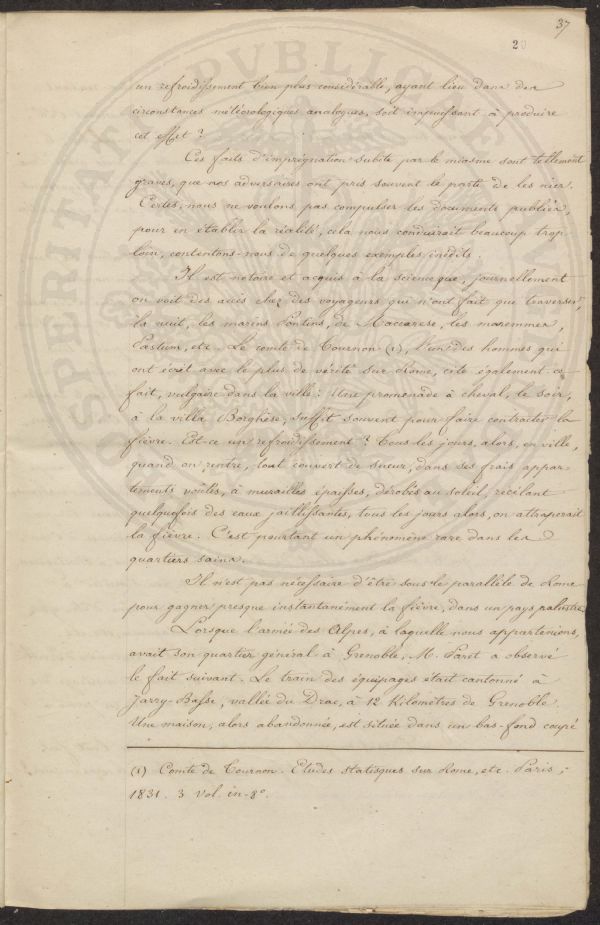 37
20
un refroidissement bien plus considérable, ayant lieu dans des
circonstances météorologiques analogues, soit impuissant à produire
cet effet ?
Ces faits d'imprégnation subite par le miasme sont tellement
graves, que nos adversaires ont pris souvent le parti de les nier.
Certes, nous ne voulons pas compulser les documents publiés,
pour en établir la réalité, cela nous conduirait beaucoup trop
loin, contentons-nous de quelques exemples inédits.
Il est notoire et acquis à la science que, journellement
on voit des accès chez des voyageurs qui n'ont fait que traverser,
la nuit, les marins Pontins, de Maccarese, les maremmes,
Pœstum, etc. Le comte de Tournon (1), l'un des hommes qui
ont écrit avec le plus de vérité sur Rome, cite également ce
fait, vulgaire dans la ville : Une promenade à cheval, le soir,
à la villa Borghèse, suffit souvent pour faire contracter la
fièvre. Est-ce un refroidissement ? Tous les jours, alors, en ville,
quand on rentre, tout couvert de sueur, dans ses frais appar-
tements voûtés, à murailles épaisses, dérobés au soleil, recélant
quelquefois des eaux jaillissantes, tous les jours alors, on attraperait
la fièvre. C'est pourtant un phénomène rare dans les
quartiers sains.
Il n'est pas nécessaire d'être sous le parallèle de Rome
pour gagner presque instantanément la fièvre, dans un pays palustre
Lorsque l'armée des Alpes, à laquelle nous appartenions,
avait son quartier général à Grenoble, M. Paret a observé
le fait suivant. Le train des équipages était cantonné à
Jarry-Basse, vallée du Drac, à 12 Kilomètres de Grenoble.
Une maison, alors abandonnée, est située dans un bas-fond coupé
(1) Comte de Tournon. Etudes statisques sur Rome, etc. Paris,
1831. 3 vol. in-8°.
PVBLIC